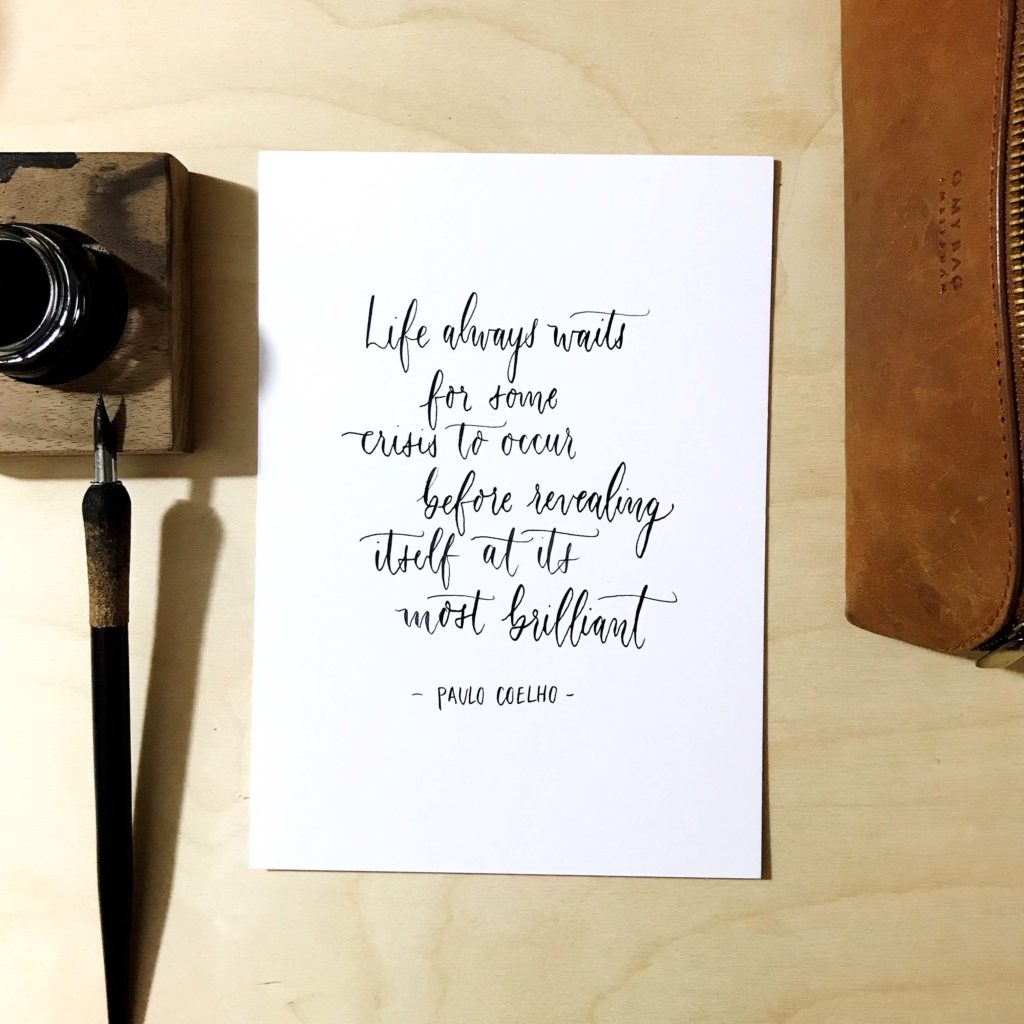 Life always waits
for some
crisis to occur
before revealing
itself at its
most brilliant
- PAULO COELHO -
O MY BAG
AMSTERDAM